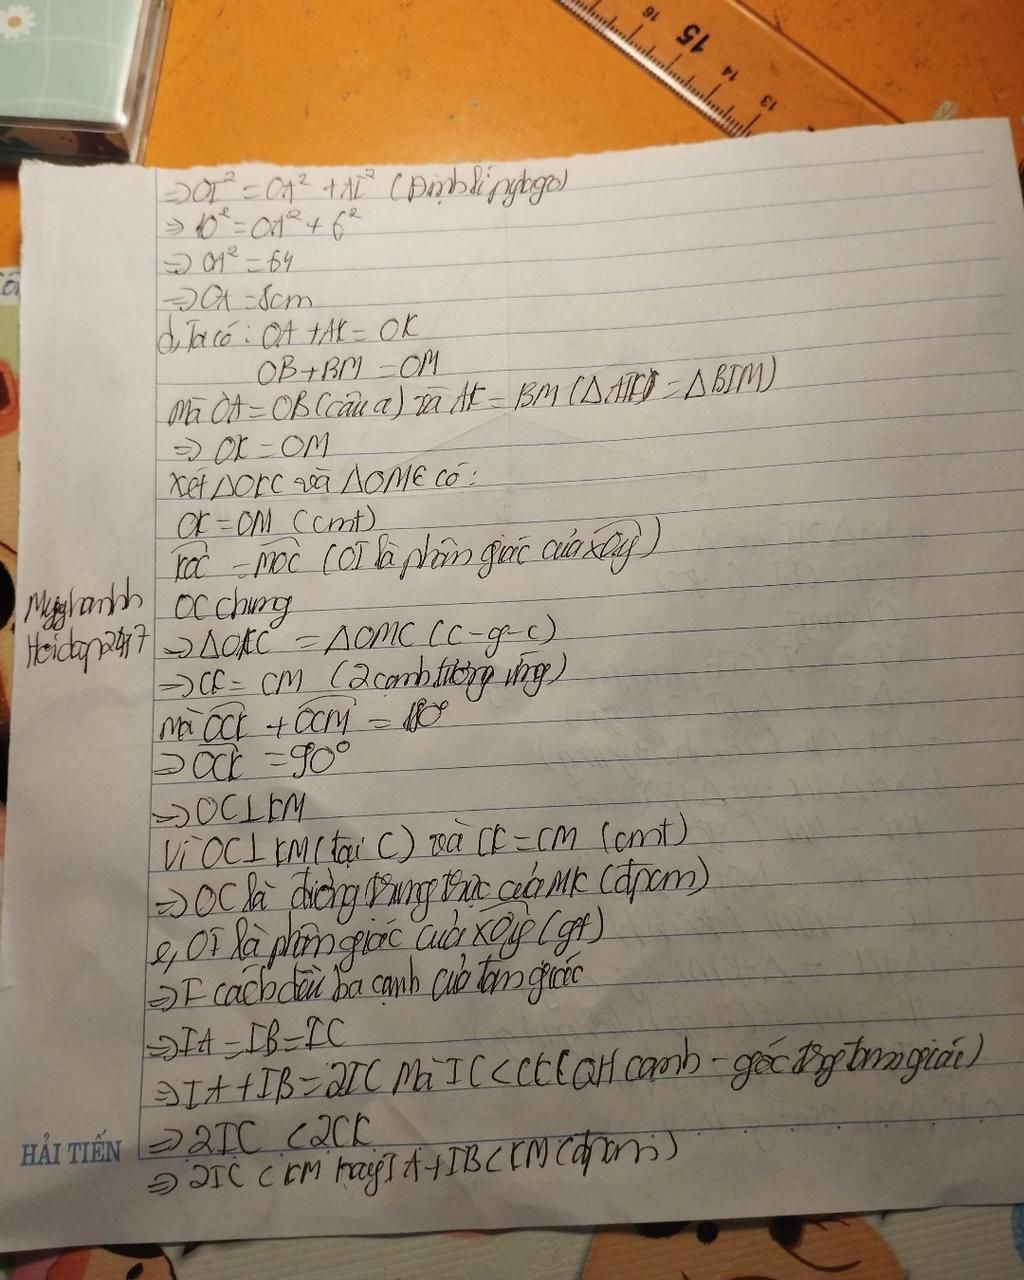 16
15
14
13
⇒ OI² = OA² + AI² (Định lí pytago)
⇒ 10² = OA² + 6²
⇒ OA² = 64
⇒ OA = 8cm
d, Ta có: OA + AK = OK
OB + BM = OM
mà OA = OB (câu a) và AK = BM (ΔAIK = ΔBIM)
⇒ OK = OM
Xét ΔOKC và ΔOMC có:
OK = OM (cmt)
KOC = MOC (OI là phân giác của xOy)
OC chung
Hoidap247
⇒ ΔOKC = ΔOMC (c-g-c)
⇒ CK = CM (2 cạnh tương ứng)
mà OCK + OCM = 180°
⇒ OCK = 90°
⇒ OC⊥KM
Vì OC⊥KM (tại C) và CK = CM (cmt)
⇒ OC là đường trung trực của MK (đpcm)
e, OI là phân giác của xOy (gt)
⇒ I cách đều ba cạnh của tam giác
⇒ IA = IB = IC
⇒ IA + IB = 2IC Mà IC < CK (QH cạnh - góc trg tam giác)
⇒ 2IC < 2CK
HẢI TIẾN
⇒ 2IC < KM hay IA + IB < KM (đpcm)